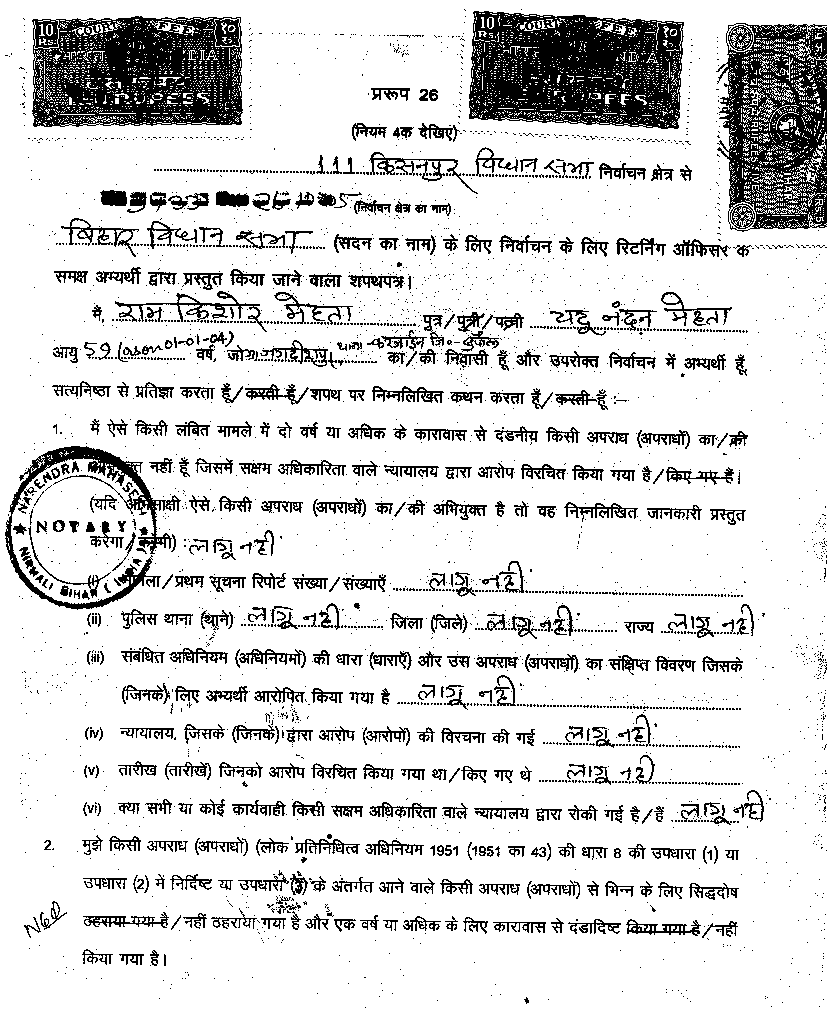 10 COURT FEE १०
Rs. रु.
INDIA
RUPEES
10 COURT FEE १०
Rs. रु.
RUPEES
प्ररूप 26
(नियम 4क देखिए)
111 किसनपुर विधान सभा निर्वाचन क्षेत्र से
(निर्वाचन क्षेत्र का नाम)
बिहार विधान सभा (सदन का नाम) के लिए निर्वाचन के लिए रिटर्निंग ऑफिसर के
समक्ष अभ्यर्थी द्वारा प्रस्तुत किया जाने वाला शपथपत्र।
मैं, राम किशोर मेहता पुत्र/पुत्री/पत्नी यदू नंदन मेहता
आयु 59 (as on 01-01-04) वर्ष, जो थाना- करजाईन जि०- सुपौल का/की निवासी हूँ और उपरोक्त निर्वाचन में अभ्यर्थी हूँ,
सत्यनिष्ठा से प्रतिज्ञा करता हूँ/करती हूँ/शपथ पर निम्नलिखित कथन करता हूँ/करती हूँ :–
1. मैं ऐसे किसी लंबित मामले में दो वर्ष या अधिक के कारावास से दंडनीय किसी अपराध (अपराधों) का/की
नहीं हूँ जिसमें सक्षम अधिकारिता वाले न्यायालय द्वारा आरोप विरचित किया गया है/किए गए हैं।
(यदि अभिसाक्षी ऐसे किसी अपराध (अपराधों) का/की अभियुक्त है तो वह निम्नलिखित जानकारी प्रस्तुत
करेगा/करेगी) : लागू नहीं
NARENDRA NOTARY NIRMALI BIHAR (INDIA)
(i) मामला/प्रथम सूचना रिपोर्ट संख्या/संख्याएँ लागू नहीं
(ii) पुलिस थाना (थाने) लागू नहीं जिला (जिले) लागू नहीं राज्य लागू नहीं
(iii) संबंधित अधिनियम (अधिनियमों) की धारा (धाराएँ) और उस अपराध (अपराधों) का संक्षिप्त विवरण जिसके
(जिनके) लिए अभ्यर्थी आरोपित किया गया है लागू नहीं
(iv) न्यायालय, जिसके (जिनके) द्वारा आरोप (आरोपों) की विरचना की गई लागू नहीं
(v) तारीख (तारीखें) जिनको आरोप विरचित किया गया था/किए गए थे लागू नहीं
(vi) क्या सभी या कोई कार्यवाही किसी सक्षम अधिकारिता वाले न्यायालय द्वारा रोकी गई है/हैं लागू नहीं
2. मुझे किसी अपराध (अपराधों) (लोक प्रतिनिधित्व अधिनियम 1951 (1951 का 43) की धारा 8 की उपधारा (1) या
उपधारा (2) में निर्दिष्ट या उपधारा (3) के अंतर्गत आने वाले किसी अपराध (अपराधों) से भिन्न के लिए सिद्धदोष
ठहराया गया है/नहीं ठहराया गया है और एक वर्ष या अधिक के लिए कारावास से दंडादिष्ट किया गया है/नहीं
किया गया है।